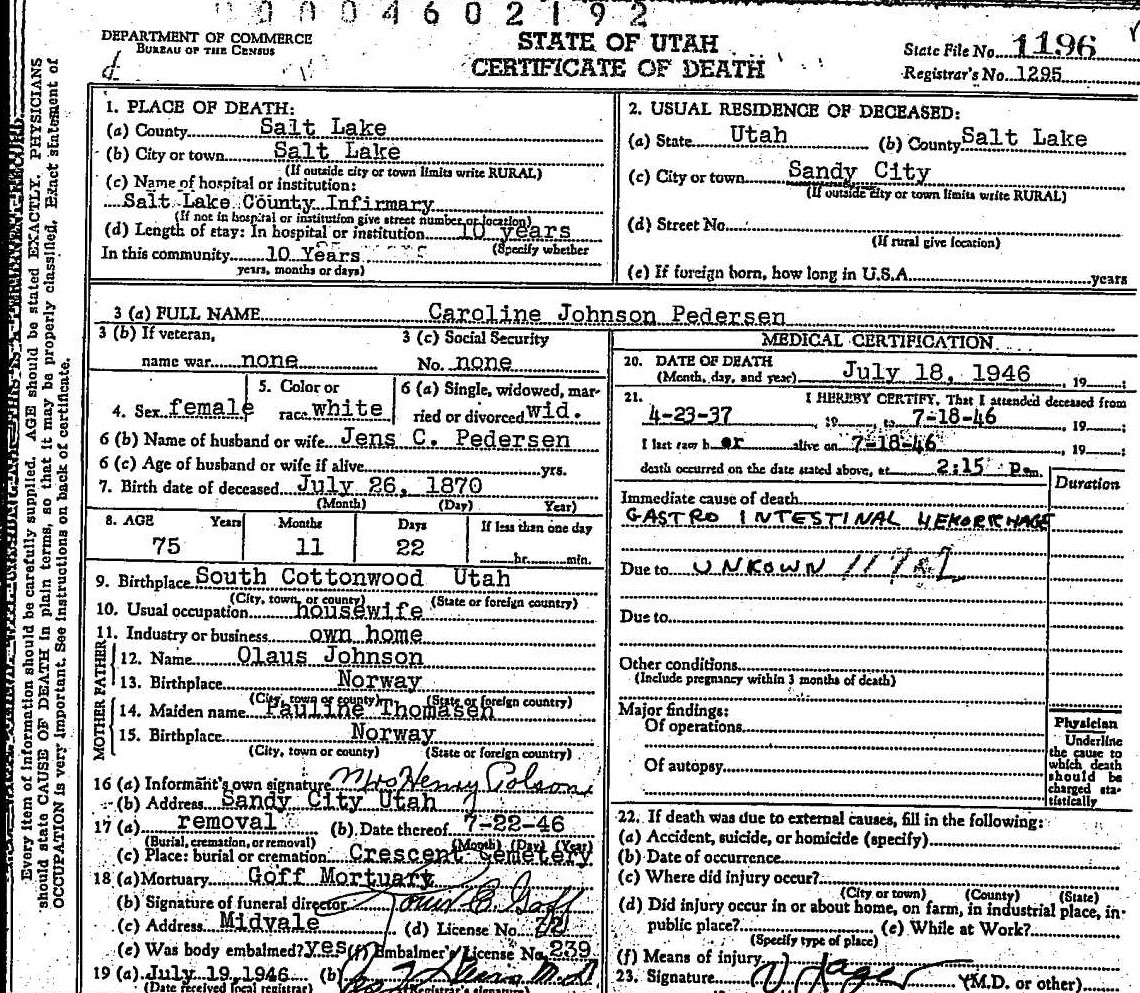 00004602192
DEPARTMENT OF COMMERCE
BUREAU OF THE CENSUS
STATE OF UTAH
CERTIFICATE OF DEATH
State File No. 1196
Registrar's No. 1295
Every item of information should be carefully supplied. AGE should be stated EXACTLY. PHYSICIANS
should state CAUSE OF DEATH in plain terms, so that it may be properly classified. Exact statement of
OCCUPATION is very important. See instructions on back of certificate.
1. PLACE OF DEATH:
(a) County Salt Lake
(b) City or town Salt Lake
(If outside city or town limits write RURAL)
(c) Name of hospital or institution:
Salt Lake County Infirmary
(If not in hospital or institution give street number or location)
(d) Length of stay: In hospital or institution 10 years
(Specify whether
In this community 10 Years
years, months or days)
2. USUAL RESIDENCE OF DECEASED:
(a) State Utah (b) County Salt Lake
(c) City or town Sandy City
(If outside city or town limits write RURAL)
(d) Street No.
(If rural give location)
(e) If foreign born, how long in U.S.A. years
3 (a) FULL NAME Caroline Johnson Pedersen
3 (b) If veteran,
name war none
3 (c) Social Security
No. none
4. Sex female
5. Color or
race white
6 (a) Single, widowed, mar-
ried or divorced wid.
6 (b) Name of husband or wife Jens C. Pedersen
6 (c) Age of husband or wife if alive yrs.
7. Birth date of deceased July 26, 1870
(Month) (Day) Year)
8. AGE Years Months Days If less than one day
75 11 22 hr. min.
9. Birthplace South Cottonwood Utah
(City, town, or county) (State or foreign country)
10. Usual occupation housewife
11. Industry or business own home
FATHER
12. Name Olaus Johnson
13. Birthplace Norway
(City, town or county) (State or foreign country)
MOTHER
14. Maiden name Pauline Thomasen
15. Birthplace Norway
(City, town or county) (State or foreign country)
16 (a) Informant's own signature Mrs Henry Polson
(b) Address Sandy City Utah
17 (a) removal (b) Date thereof 7-22-46
(Burial, cremation, or removal) (Month) (Day) (Year)
(c) Place: burial or cremation Crescent Cemetery
18 (a) Mortuary Goff Mortuary
(b) Signature of funeral director
(c) Address Midvale (d) License No.
(e) Was body embalmed? yes (f) Embalmer's License No. 239
19 (a) July 19, 1946 (b)
(Date received local registrar) (Registrar's signature)
MEDICAL CERTIFICATION
20. DATE OF DEATH
(Month, day, and year) July 18, 1946 , 19 ;
21. I HEREBY CERTIFY, That I attended deceased from
4-23-37 , 19 , to 7-18-46 , 19 ;
I last saw h er alive on 7-18-46 , 19 ;
death occurred on the date stated above, at 2:15 P m.
Duration
Immediate cause of death
GASTRO INTESTINAL HEMORRHAGE
Due to UNKOWN
Due to
Other conditions
(Include pregnancy within 3 months of death)
Major findings:
Of operations
Of autopsy
Physician
Underline
the cause to
which death
should be
charged sta-
tistically
22. If death was due to external causes, fill in the following:
(a) Accident, suicide, or homicide (specify)
(b) Date of occurrence
(c) Where did injury occur?
(City or town) (County) (State)
(d) Did injury occur in or about home, on farm, in industrial place, in
public place? (e) While at Work?
(Specify type of place)
(f) Means of injury
23. Signature (M.D. or other)